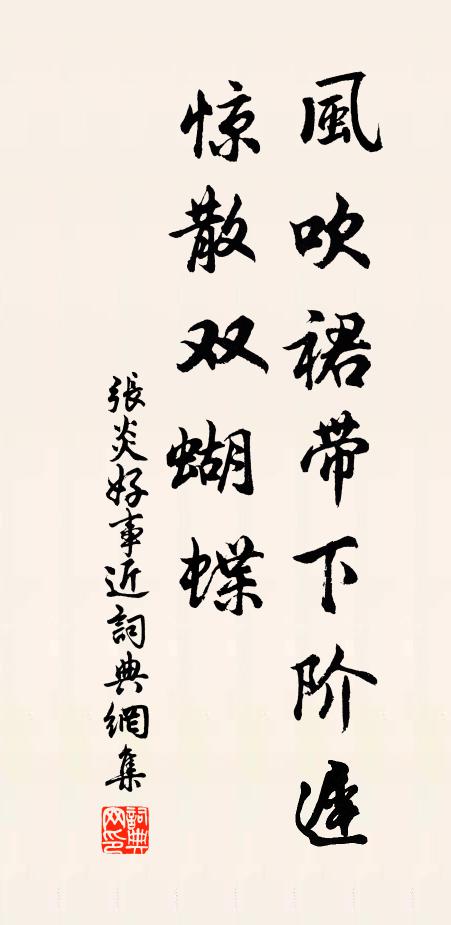 風吹裙带下阶遲
惊散双蝴蝶
張炎好事近詞典網集
詞典網印